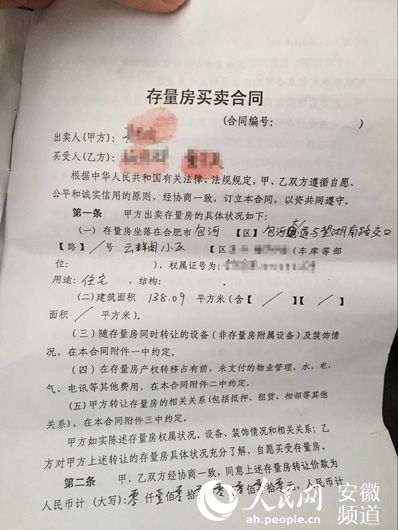 存量房买卖合同
(合同编号:                )
出卖人(甲方):
买受人(乙方):
根据中华人民共和国有关法律、法规规定,甲、乙双方遵循自愿、
公平和诚实信用的原则,经协商一致,订立本合同,以资共同遵守。
第一条 甲方出卖存量房的具体状况如下:
(一)存量房坐落在合肥市 包河 【区】 包河大道与望湖南路交口
【路】 / 号 【区】 (车库等部
位: ),权属证号为:
用途: 住宅 ,结构:
(二)建筑面积 138.09 平方米(含【 / 】【 / 】
面积 / 平方米)。
(三)随存量房同时转让的设备(非存量房附属设备)及装饰情
况,在本合同附件一中约定。
(四)在存量房产权转移占有前,未支付的物业管理、水、电、
气、电讯等其他费用,在本合同附件二中约定。
(五)甲方转让存量房的相关关系(包括抵押、租赁、相邻等其他
关系),在本合同附件三中约定。
甲方如实陈述存量房权属状况、设备、装饰情况和相关关系;乙
方对甲方上述转让的存量房具体状况充分了解,自愿买受存量房。
第二条 甲、乙双方经协商一致,同意上述存量房转让价款为
人民币计(大写): 零 仟 壹 佰 零 拾 佰 拾 元,人民币计
人民网 安徽频道
ah.people.cn